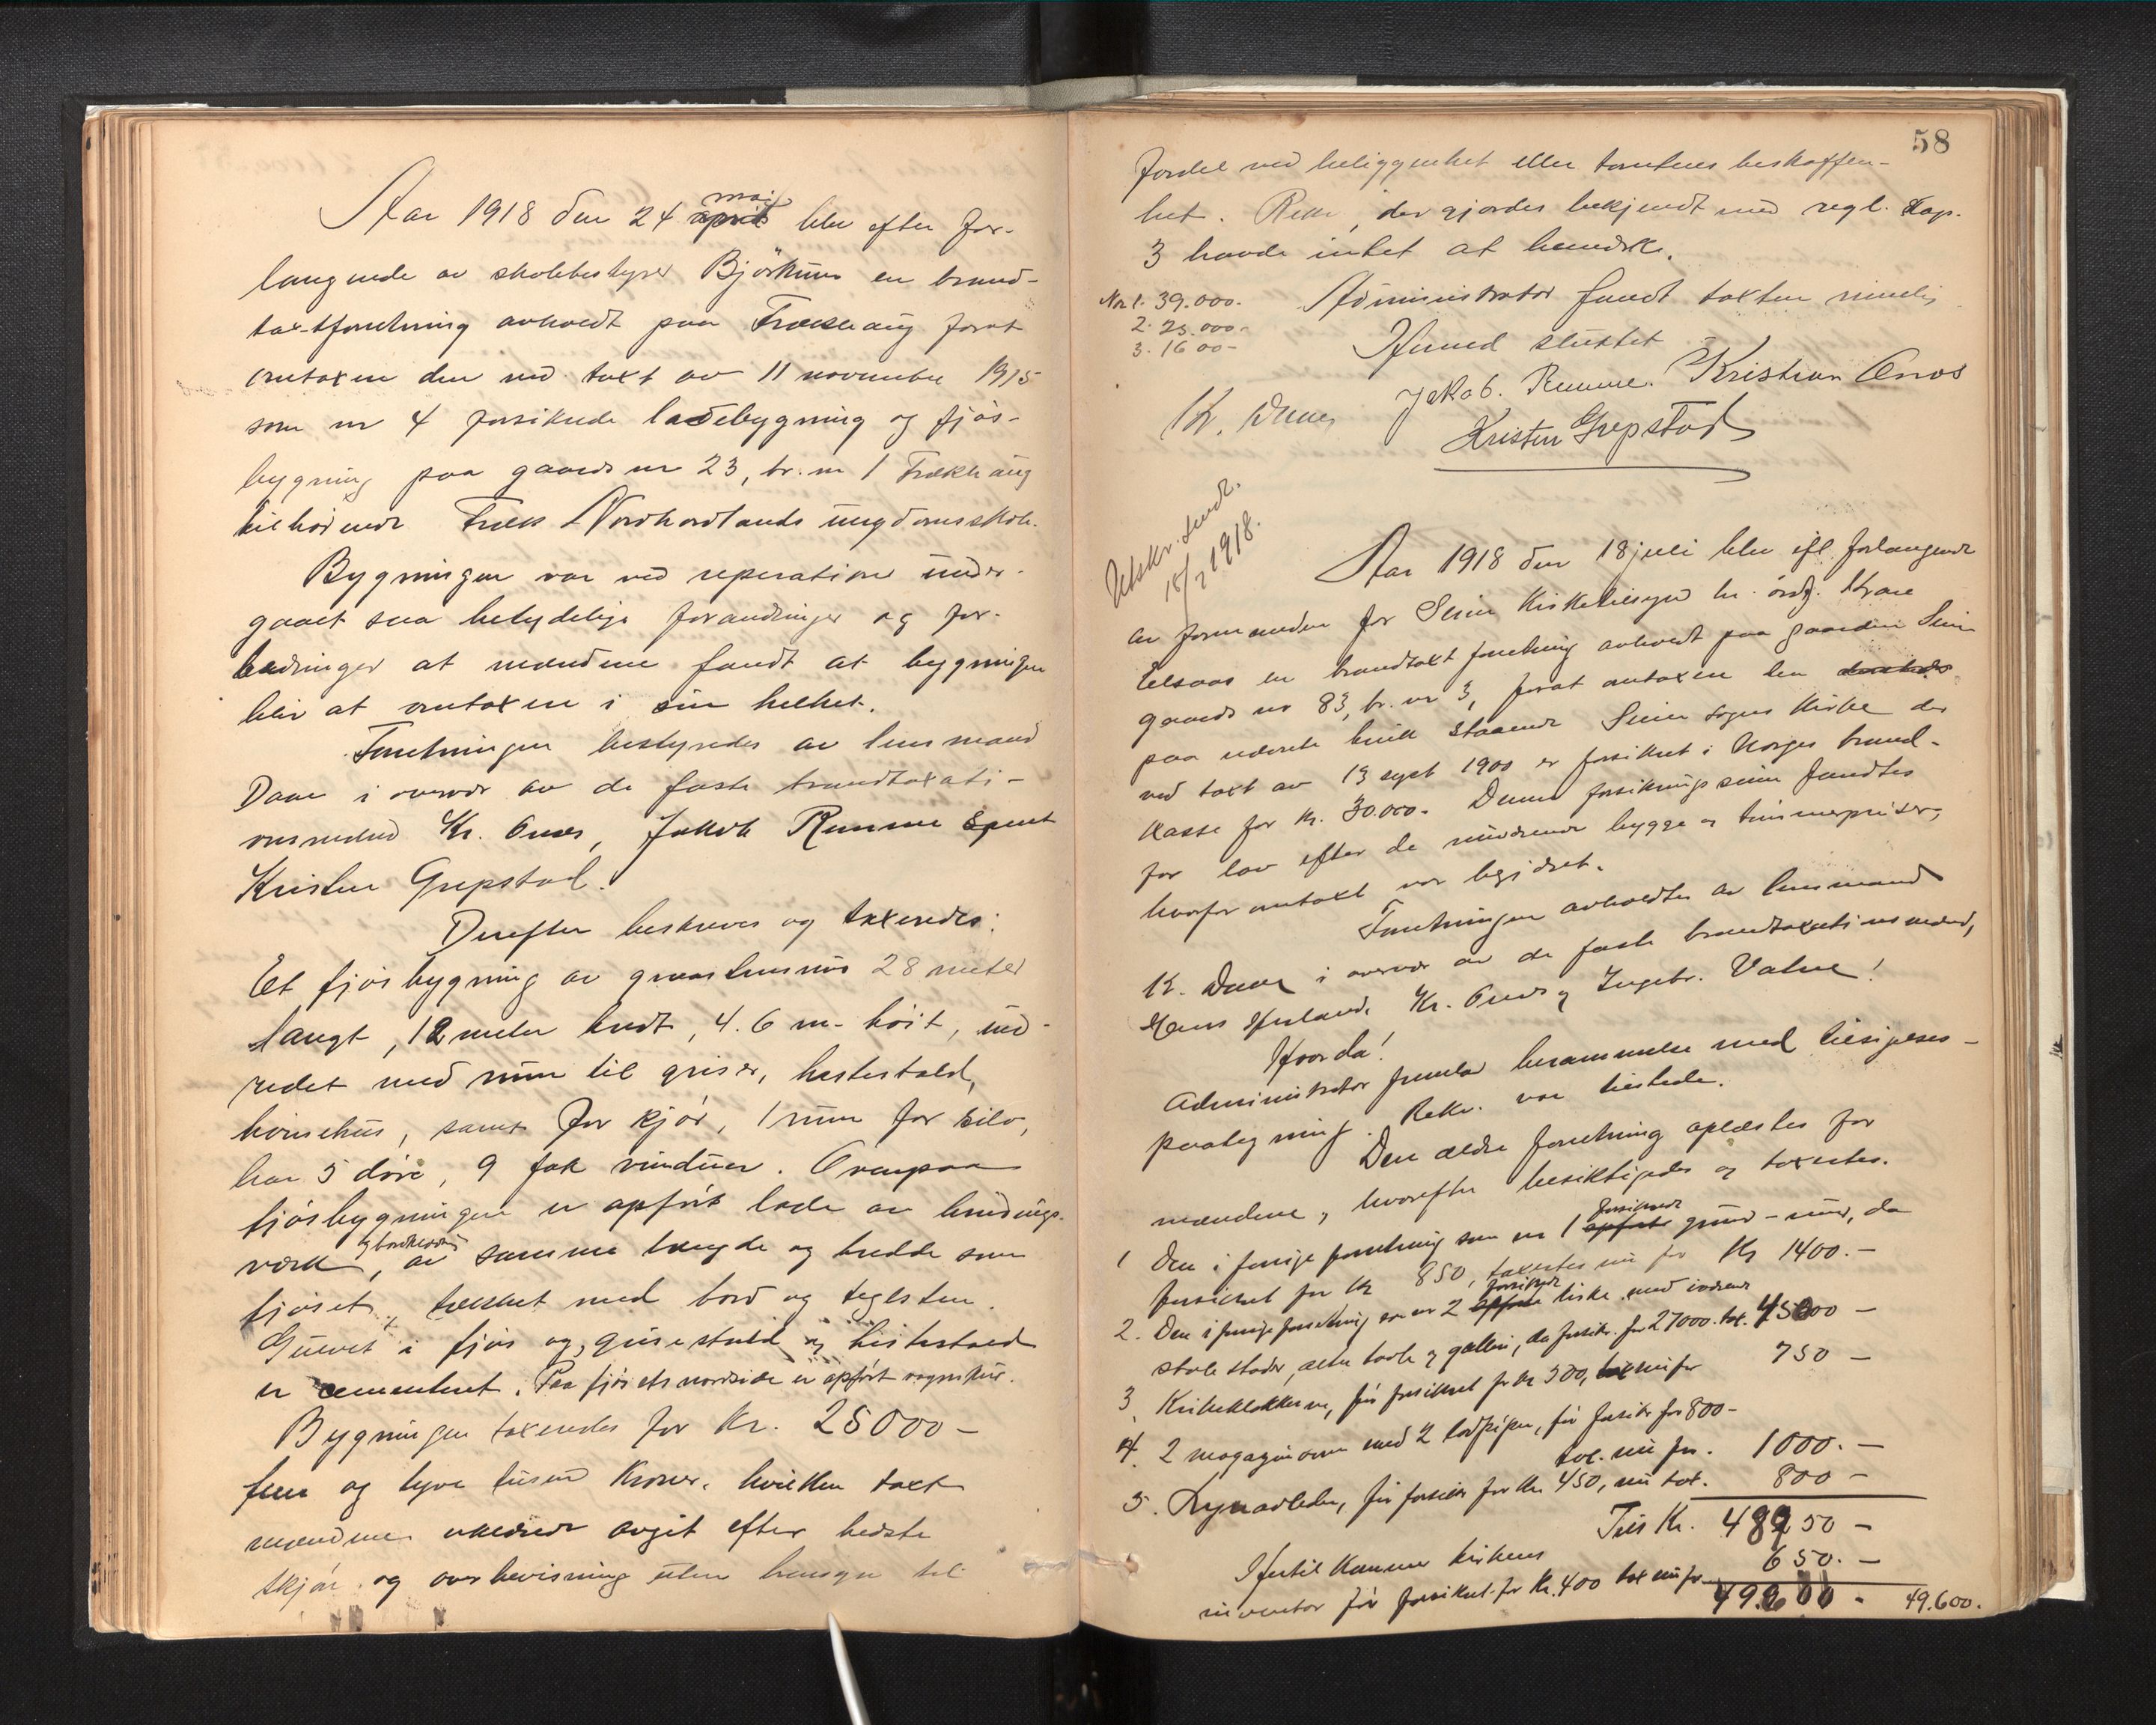 Aar 1918 den 24 april mai blev efter for-
langende av skolebestyrer Björkum en brand-
taxtforretning avholdt paa Frækhaug forat
omtaxere den ved taxt av 11 november 1915
som nr 4 forsikrede ladebygning og fjös-
bygning paa gaards nr 23, br. nr 1 Frækhaug
tilhörende Nordhordlands ungdomsskole.
Bygningen var ved reparation under-
gaaet saa betydelige forandringer og for-
bedringer at mændene fandt at bygningen
blir at omtaxere i sin helhet.
Forretningen bestyredes av lensmand
Daae i overvær av de faste brandtaxati-
onsmænd Kr. Onæs, Jakob Remme samt
Kristen Grepstad.
Derefter beskreves og taxeredes:
Et fjösbygning av graastensmur 28 meter
langt, 12 meter bredt, 4.6 m. höit, ind-
redet med rum til griser, hestestald,
hönsehus, samt for kjör, 1 rum for silo,
har 5 döre, 9 fak vinduer. Ovenpaa
fjösbygningen er opfört lade av bindings-
verk og bordklædning, av samme længde og bredde som
fjöset, tækket med bord og teglsten.
Gulvet i fjös og grisestald og hestestald
er cementert. Paa fjösets nordside er opfört vognskur.
Bygningen taxeredes for kr. 25000 -
fem og tyve tusen kroner, hvilken taxt
mændene erklærede avgit efter bedste
skjön og overbevisning uten hensyn til
58
fordel ved beliggenhet eller tomtens beskaffen-
het. Rekv, der gjordes bekjendt med regl. Kap.
3 havde intet at bemerke.
Nr 1. 39.000.
2. 25.000 -
3. 16 00 -
Administrator fandt taxten rimelig
Hermed sluttet
K. Daae Jakob. Remme. Kristian Onæs
Kristen Grepstad
Utskr. sendt.
18/7 1918.
Aar 1918 den 18 juli blev efl forlangende
av formanden for Seim Kirketilsyn hr. ordf. Krare
Eelsaas en brandtaxt forretning avholdt paa gaarden Seim
gaards nr 83, br. nr 3, forat omtaxere den
paa nævnte bruk staaende Seim sogns kirke der
ved taxt av 13 sept 1900 er forsikret i Norges brand-
kasse for kr. 30.000. Denne forsikringssum fandtes
for lav efter de nuværende bygge og tömmerpriser,
hvorfor omtaxt var begjæret.
Forretningen avholdtes av lensmand
K. Daae i overvær av de faste brandtaxationsmænd,
Hans Herland, Kr. Onæs og Ingebr. Valne!
Hvorda!
Administrator fremla berammelse med tilsigelses-
paategning. Rekv. var tilstede.
Den ældre forretning oplæstes for
mændene, hvorefter besiktigedes og taxertes.
1 Den i forrige forretning som nr 1 opförte forsikrede grund-mur, da
forsikret for kr 850, taxertes nu for Kr 1400. —
2. Den i forrige forretning som nr 2 opförte forsikrede kirke med indrede
stole stader, alter tavle og galleri, da forsikr. for 27000. tax. 45000 —
3 Kirkeklokkerne, för forsikret for kr 500, tax nu for 750 —
4. 2 magasinovne med 2 rodpiper, för forsikr for 800 -
tax. nu for. 1000. —
5. Lynavleder, för forsikr for kr. 450, nu tax. 800 —
Tils Kr. 48950 —
Hertil kommer kirkens
inventar för forsikret for Kr. 400 tax nu for 650. —
49.600 - 49.600.